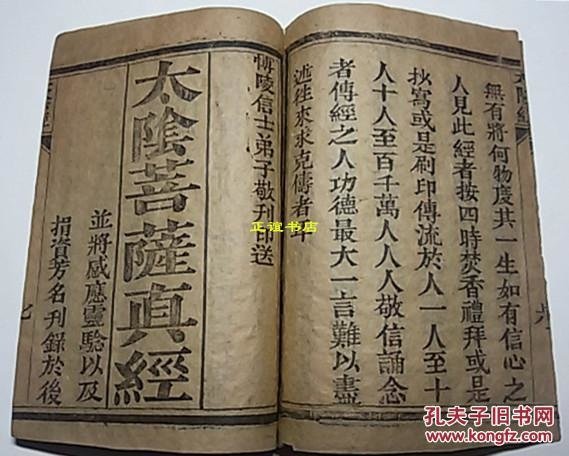 太陰經
無有將何物度其一生如有信心之
人見此經者按四時焚香禮拜或是
抄寫或是刷印傳流於人一人至十
人十人至百千萬人人人敬信誦念
者傳經之人功德最大一言難以盡
述往來求克儔者年
博陵信士弟子敬刊印送
太陰菩薩真經
並將感應靈驗以及
捐資芳名刊錄於後
七
正谊书店
孔夫子旧书网
www.kongfz.com